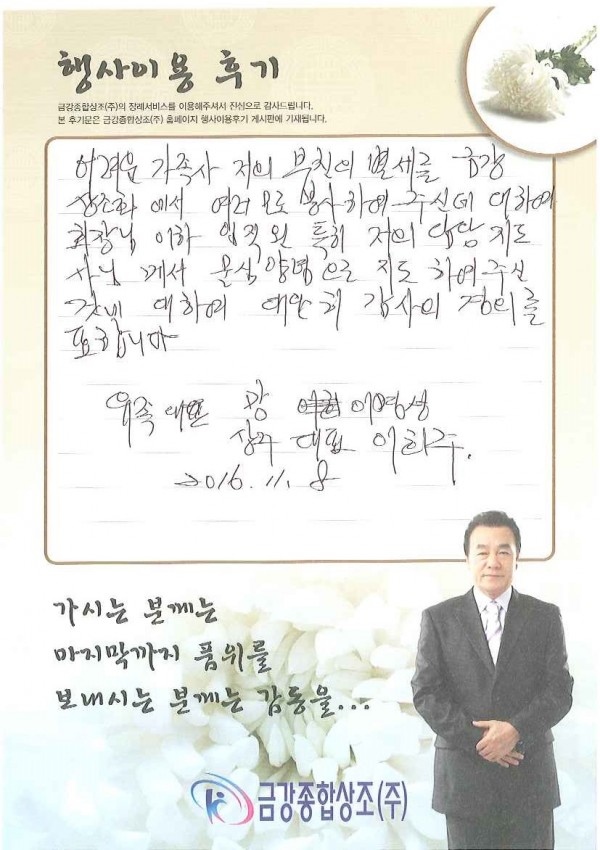 행사이용 후기
금강종합상조(주)의 장례서비스를 이용해주셔서 진심으로 감사드립니다.
본 후기문은 금강종합상조(주) 홈페이지 행사이용후기 게시판에 기재됩니다.
어려운 가족사 저의 부친의 별세를 금강
상조 에서 여러모로 봉사하여 주신데 대하여
회장님 이하 임직원 특히 저의 담당 지도
사님 께서 물심양면으로 지도 하여주신
것에 대하여 대단히 감사의 경의를
표합니다
유족대표 이영성
상주 대표 이희주.
2016. 11. 8
가시는 분께는
마지막까지 품위를
보내시는 분께는 감동을...
금강종합상조(주)